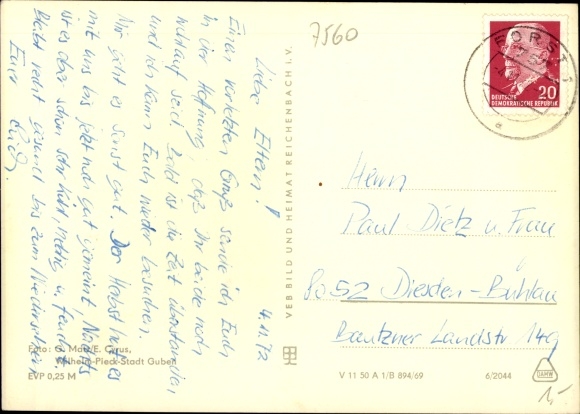 Liebe Eltern!
4.11.72
Einen herzlichen Gruß sende ich Euch
in der Hoffnung, daß Ihr beide noch
wohlauf seid. Bald ist die Zeit überstanden
und ich kann Euch wieder besuchen.
Mir geht es sonst gut. Der Herbst hat es
mit uns bis jetzt noch gut gemeint. Nachts
ist es aber schon sehr kalt, neblig u. feucht.
Bleibt recht gesund bis zum Wiedersehen
Eure
Foto: G. Mai/E. Cyrus,
Wilhelm-Pieck-Stadt Guben
EVP 0,25 M
VEB BILD UND HEIMAT REICHENBACH i. V.
7560
FORST 1
a
20
DEUTSCHE
DEMOKRATISCHE REPUBLIK
Herrn
Paul Dietz u. Frau
8052 Dresden-Bühlau
Bautzner Landstr 149
V 11 50 A 1/B 894/69
6/2044
DAMW
1,-